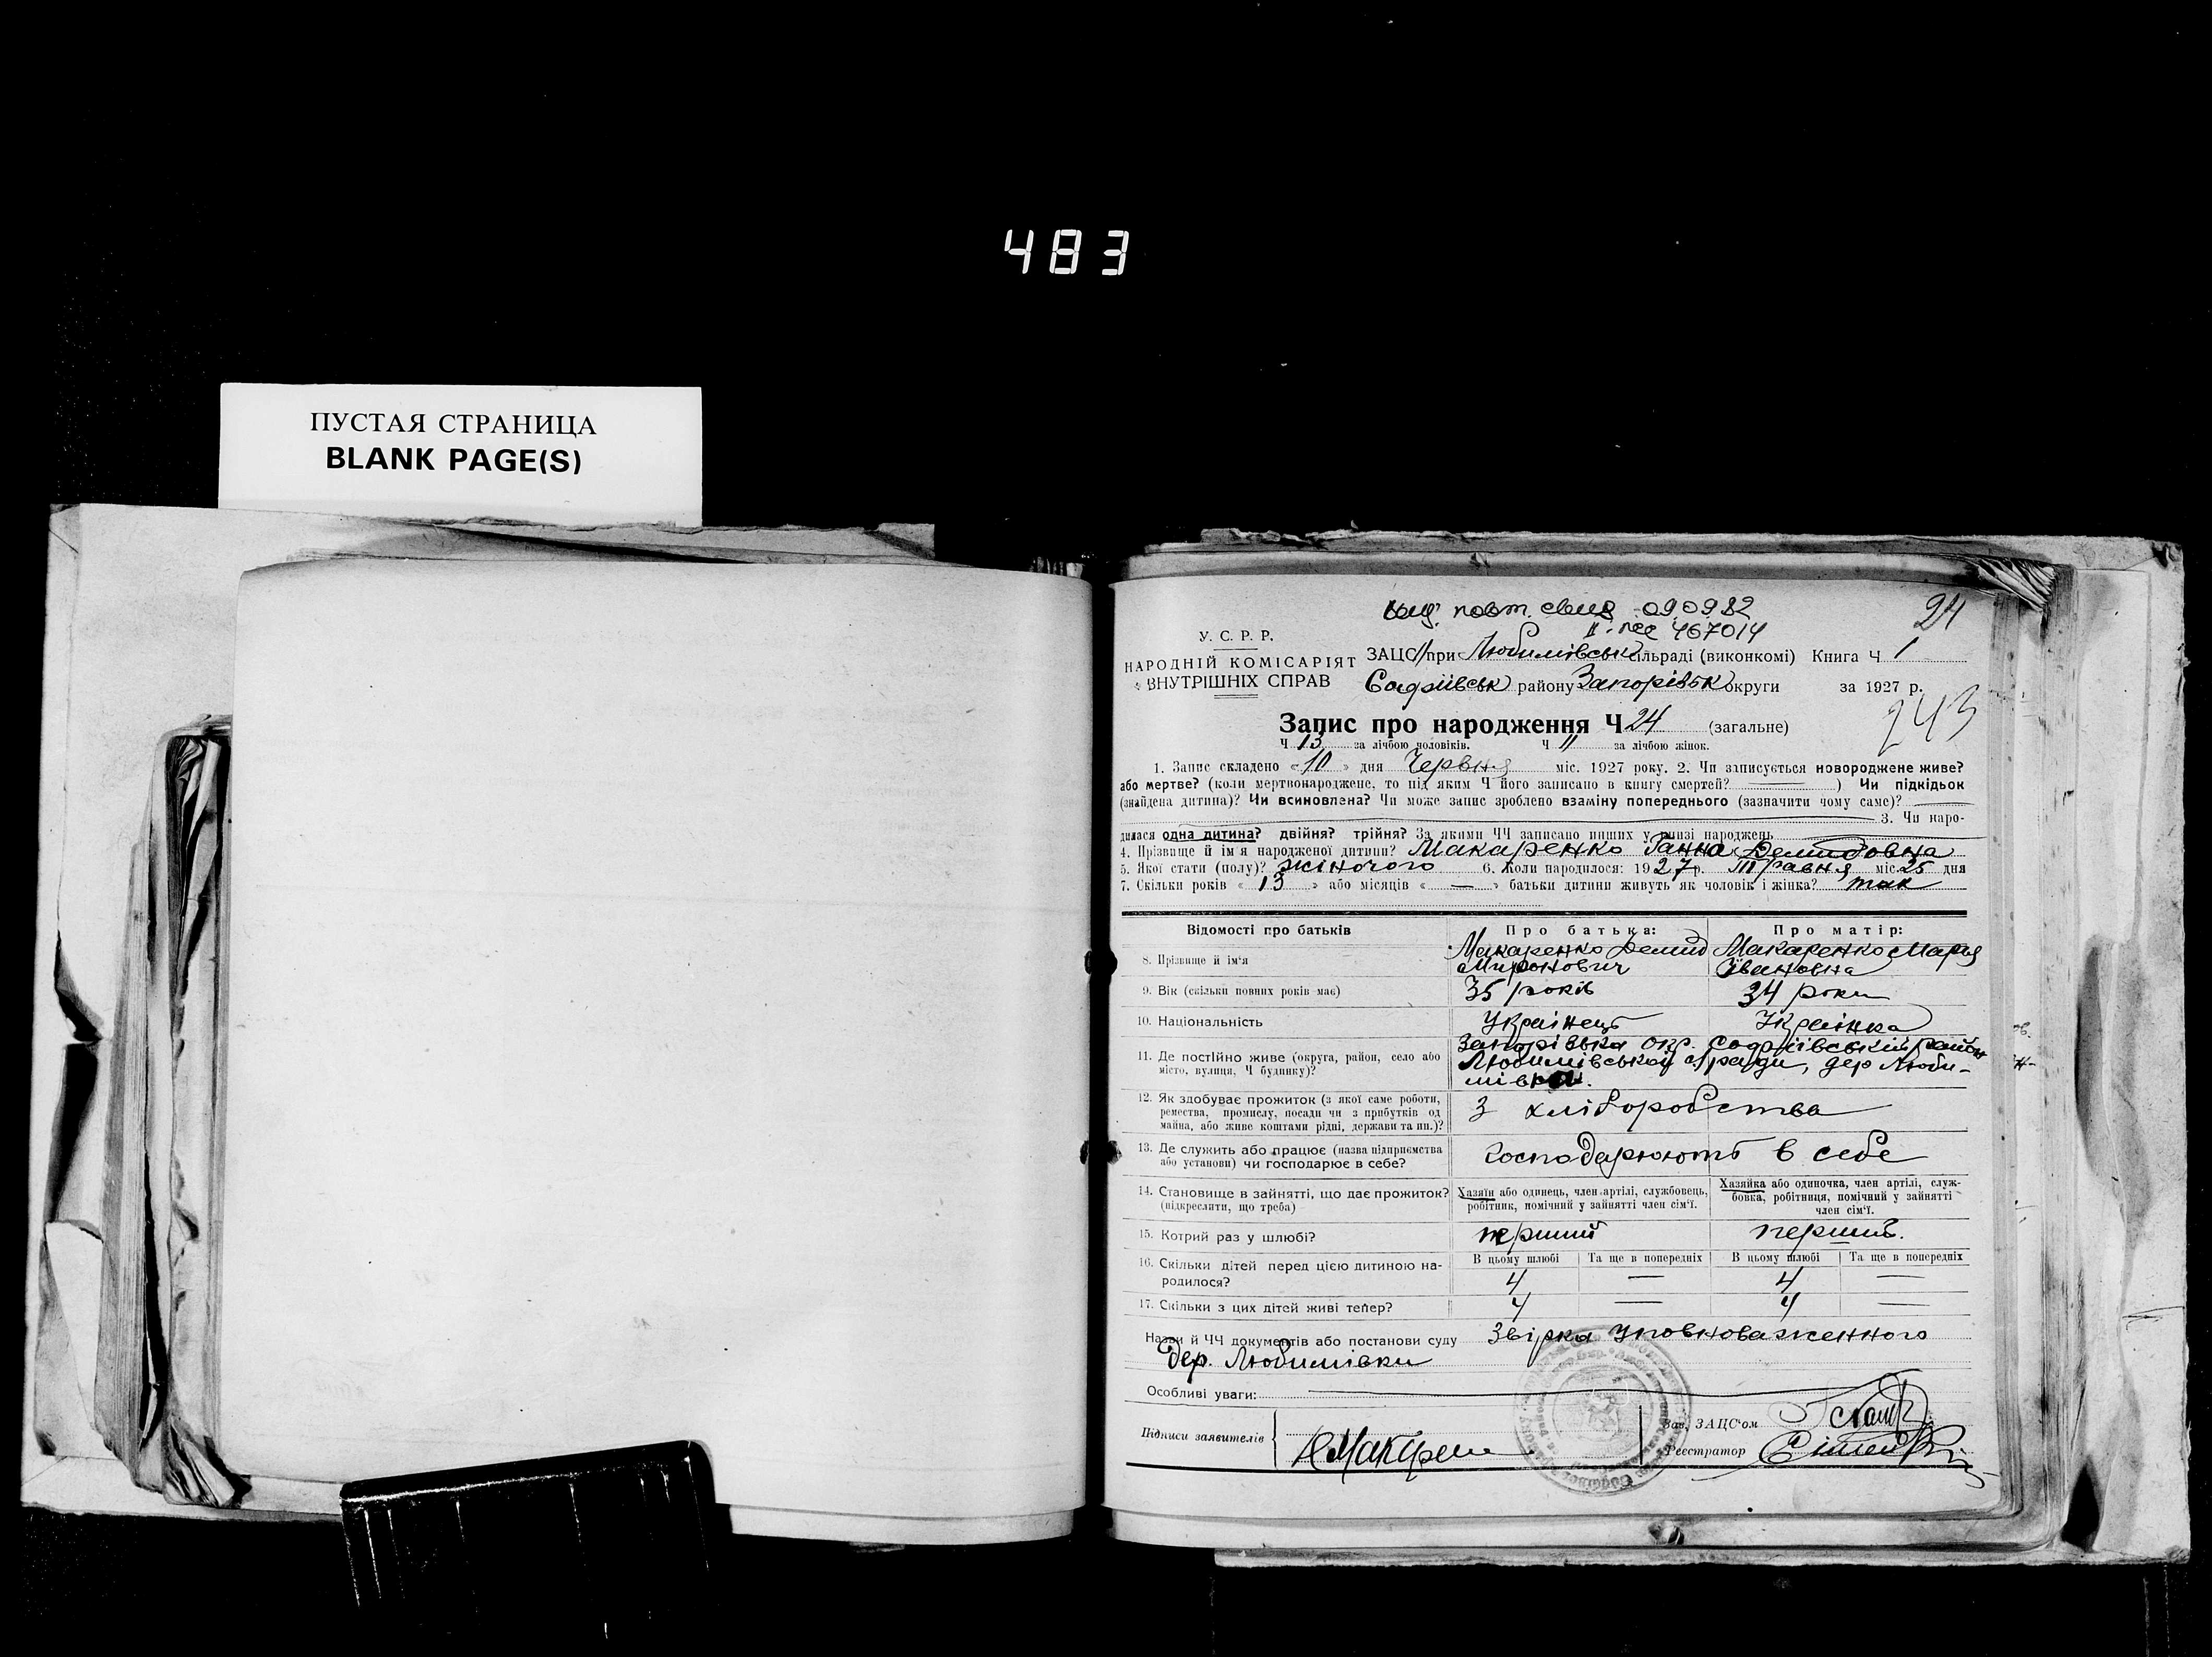 483
ПУСТАЯ СТРАНИЦА
BLANK PAGE(S)
повт. свид 090982
467014
24
У. С. Р. Р.
НАРОДНІЙ КОМІСАРІЯТ
ВНУТРІШНІХ СПРАВ
ЗАЦС при Любимівськ сільраді (виконкомі) Книга Ч 1
Софіївськ району Запорізьк округи за 1927 р.
243
Запис про народження Ч 24 (загальне)
Ч 13 за лічбою чоловіків. Ч 11 за лічбою жінок.
1. Запис складено «10» дня Червня міс. 1927 року. 2. Чи записується новороджене живе?
або мертве? (коли мертвонароджене, то під яким Ч його записано в книгу смертей? —) Чи підкідьок
(знайдена дитина)? Чи всиновлена? Чи може запис зроблено взаміну попереднього (зазначити чому саме)? —
3. Чи наро-
дилася одна дитина? двійня? трійня? За якими ЧЧ записано инших у книзі народжень
4. Прізвище й ім'я народженої дитини? Макаренко Ганна Демидовна
5. Якої стати (полу)? жіночого 6. Коли народилося: 1927 р. Травня міс. 25 дня
7. Скільки років «13» або місяців «—» батьки дитини живуть як чоловік і жінка? так
Відомості про батьків Про батька: Про матір:
8. Прізвище й ім'я Макаренко Демид Миронович Макаренко Марія Івановна
9. Вік (скільки повних років має) 35 років 34 роки
10. Національність Українець Українка
11. Де постійно живе (округа, район, село або
місто, вулиця, Ч будинку)?
Запорізька окр. Софіївський район
Любимівської с/ради, дер Люби-
мівки.
12. Як здобуває прожиток (з якої саме роботи,
ремества, промислу, посади чи з прибутків од
майна, або живе коштами рідні, держави та ин.)?
З хліборобства
13. Де служить або працює (назва підприємства
або установи) чи господарює в себе?
Господарюють в себе
14. Становище в зайнятті, що дає прожиток?
(підкреслити, що треба)
Хазяїн або одинець, член артілі, службовець,
робітник, помічний у зайнятті член сім'ї.
Хазяйка або одиночка, член артілі, служ-
бовка, робітниця, помічний у зайнятті
член сім'ї.
15. Котрий раз у шлюбі? перший перший.
16. Скільки дітей перед цією дитиною на-
родилося?
В цьому шлюбі Та ще в попередніх В цьому шлюбі Та ще в попередніх
4 — 4 —
17. Скільки з цих дітей живі тепер? 4 — 4 —
Назви й ЧЧ документів або постанови суду Звірка уповноваженного
дер. Любимівки
Особливі уваги:
Підписи заявителів
Зав. ЗАЦС'ом
Реєстратор